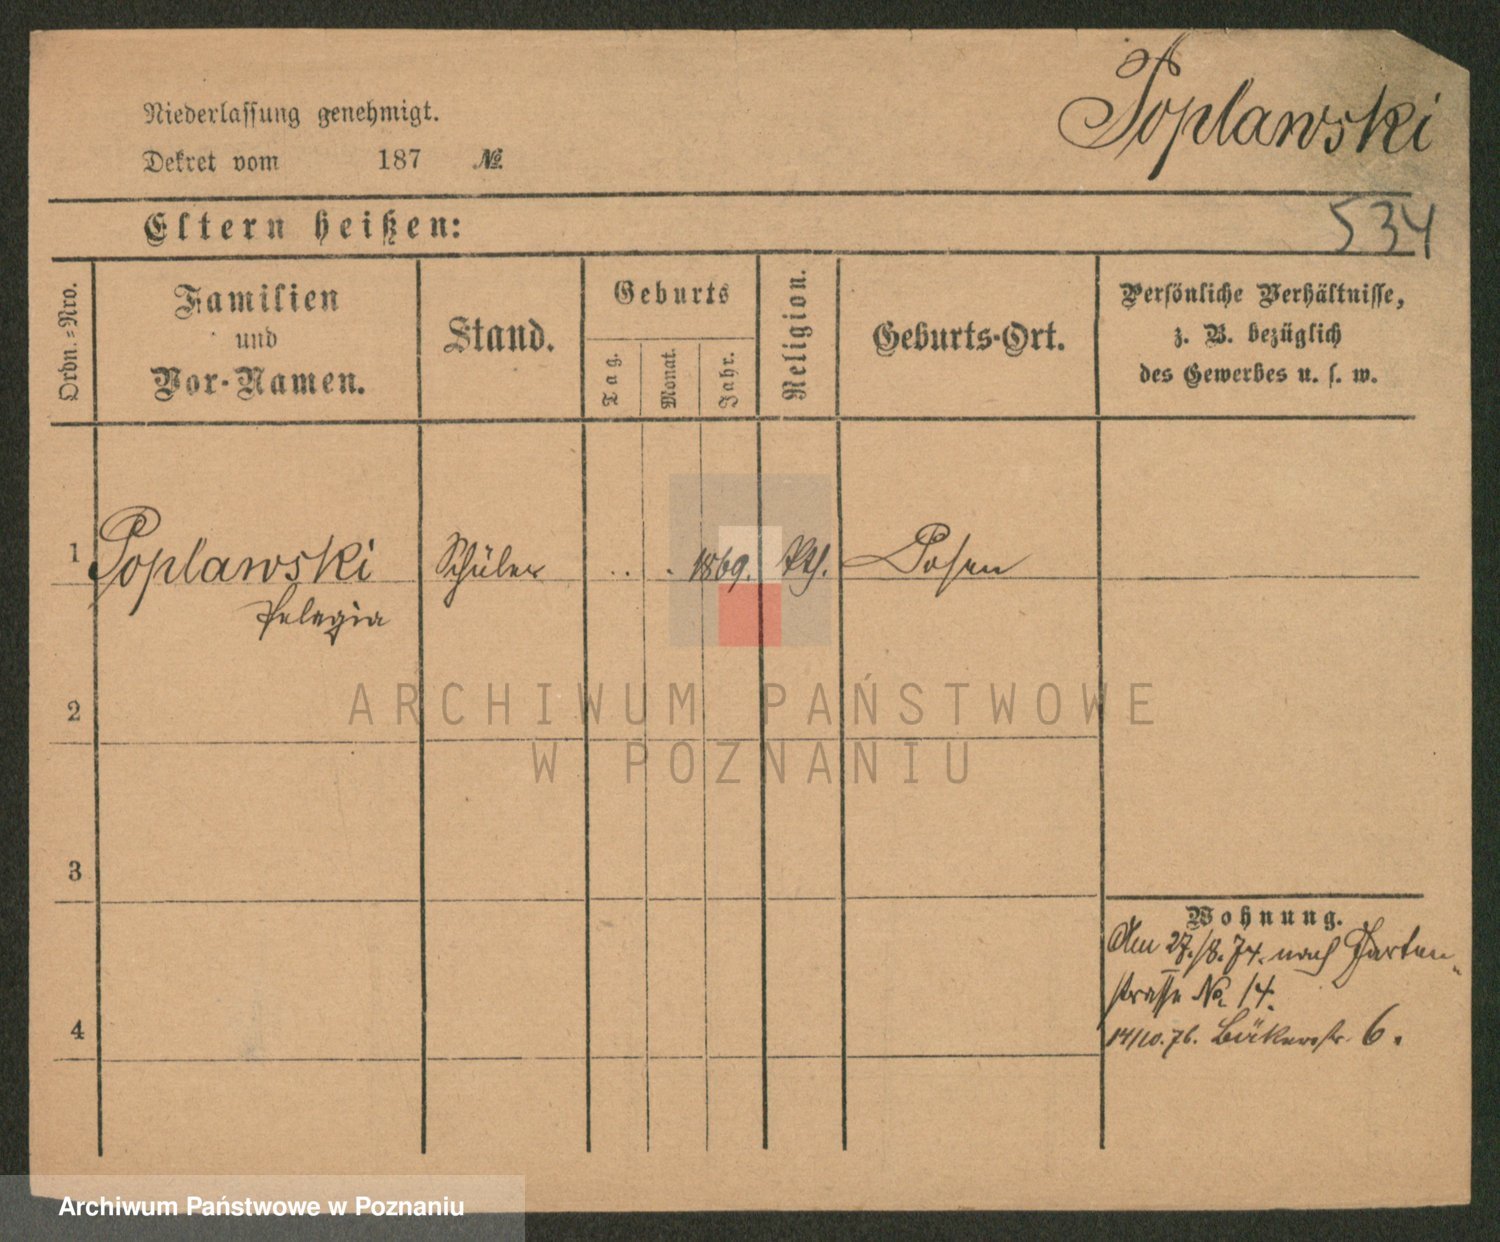 Poplawski
Niederlassung genehmigt.
Dekret vom 187 №
Eltern heißen:
534
Ordn.=Nro.
Familien
und
Vor-Namen.
Stand.
Geburts
Tag.
Monat.
Jahr.
Religion.
Geburts-Ort.
Persönliche Verhältnisse,
z. B. bezüglich
des Gewerbes u. s. w.
1 Poplawski Schüler . . . 1869. kth. Posen
Pelagia
2
3
4
Wohnung.
Am 27./8. 74. nach Garten-
strasse No. 14.
14/10. 76. Bäckerstr. 6.
ARCHIWUM PAŃSTWOWE
W POZNANIU
Archiwum Państwowe w Poznaniu